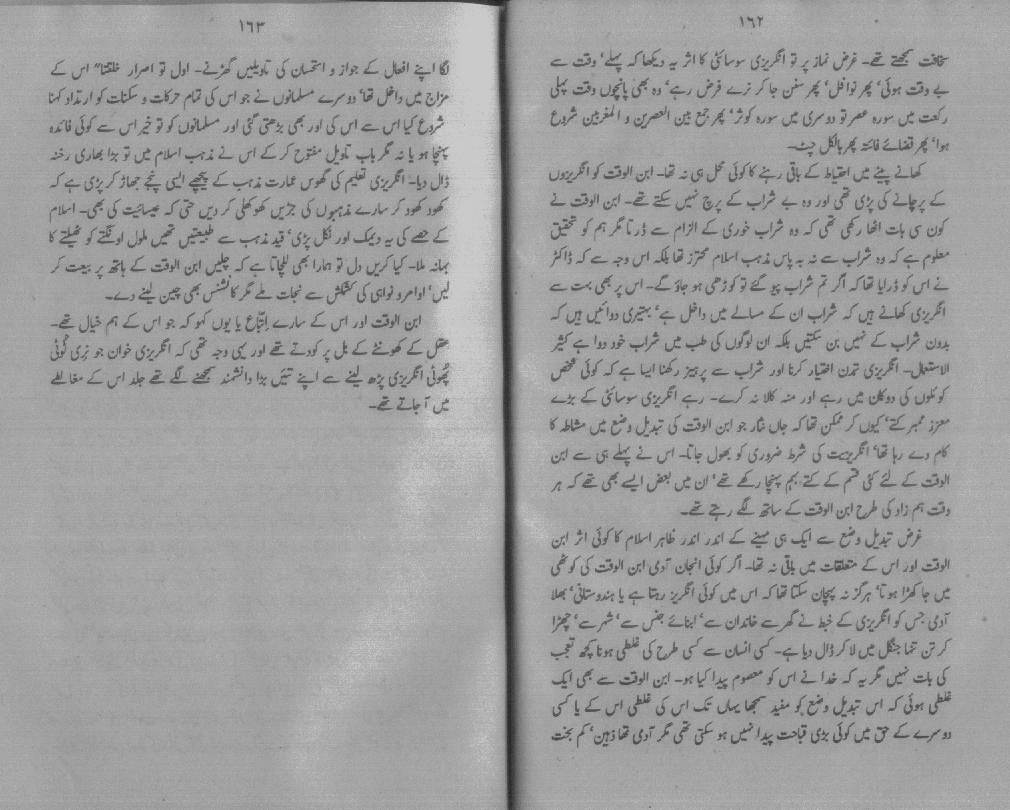 ۱۶۲
سخافت سمجھتے تھے۔ غرض نماز پر تو انگریزی سوسائٹی کا اثر یہ دیکھا کہ پہلے' وقت سے
بے وقت ہوئی' پھر نوافل' پھر سنن جا کر نرے فرض رہے' وہ بھی پانچوں وقت پہلی
رکعت میں سورہ عصر تو دوسری میں سورہ کوثر' پھر جمع بین العصرین و المغربین شروع
ہوا' پھر قضائے فائتہ پھر بالکل چٹ۔
کھانے پینے میں احتیاط کے باقی رہنے کا کوئی محل ہی نہ تھا۔ ابن الوقت کو انگریزوں
کے پرچانے کی پڑی تھی اور وہ بے شراب کے پرچ نہیں سکتے تھے۔ ابن الوقت نے
کون سی بات اٹھا رکھی تھی کہ وہ شراب خوری کے الزام سے ڈرتا مگر ہم کو تحقیق
معلوم ہے کہ وہ شراب سے نہ بہ پاس مذہب اسلام محترز تھا بلکہ اس وجہ سے کہ ڈاکٹر
نے اس کو ڈرایا تھا کہ اگر تم شراب پیو گئے تو کوڑھی ہو جاؤ گے۔ اس پر بھی بہت سے
انگریزی کھانے ہیں کہ شراب ان کے مسالے میں داخل ہے' بہتیری دوائیں ہیں کہ
بدون شراب کے نہیں بن سکتیں بلکہ ان لوگوں کی طب میں شراب خود دوا ہے کثیر
الاستعمال۔ انگریزی تمدن اختیار کرنا اور شراب سے پرہیز رکھنا ایسا ہے کہ کوئی شخص
کوئلوں کی دوکان میں رہے اور منہ کالا نہ کرے۔ رہے انگریزی سوسائٹی کے بڑے
معزز ممبر کتے' کیوں کر ممکن تھا کہ جاں نثار جو ابن الوقت کی تبدیل وضع میں مشاطہ کا
کام دے رہا تھا' انگریزیت کی شرط ضروری کو بھول جاتا۔ اس نے پہلے ہی سے ابن
الوقت کے لئے کئی قسم کے کتے بہم پہنچا رکھے تھے' ان میں بعض ایسے بھی تھے کہ ہر
وقت ہم زاد کی طرح ابن الوقت کے ساتھ لگے رہتے تھے۔
غرض تبدیل وضع سے ایک ہی مہینے کے اندر اندر ظاہر اسلام کا کوئی اثر ابن
الوقت اور اس کے متعلقات میں باقی نہ تھا۔ اگر کوئی انجان آدمی ابن الوقت کی کوٹھی
میں جا کھڑا ہوتا' ہرگز نہ پہچان سکتا تھا کہ اس میں کوئی انگریز رہتا ہے یا ہندوستانی' بھلا
آدمی جس کو انگریزی کے خبط نے گھر سے خاندان سے' ابنائے جنس سے' شہر سے' چھڑا
کر تن تنہا جنگل میں لا کر ڈال دیا ہے۔ کسی انسان سے کسی طرح کی غلطی ہونا کچھ تعجب
کی بات نہیں مگر یہ کہ خدا نے اس کو معصوم پیدا کیا ہو۔ ابن الوقت سے بھی ایک
غلطی ہوئی کہ اس تبدیل وضع کو مفید سمجھا یہاں تک اس کی غلطی اس کے یا کسی
دوسرے کے حق میں کوئی بڑی قباحت پیدا نہیں ہو سکتی تھی مگر آدمی تھا ذہین' کم بخت
۱۶۳
لگا اپنے افعال کے جواز و استحسان کی تاویلیں گھڑنے۔ اول تو اصرار خلقتا" اس کے
مزاج میں داخل تھا' دوسرے مسلمانوں نے جو اس کی تمام حرکات و سکنات کو ارتداد کہنا
شروع کیا اس سے اس کی اور بھی بڑھتی گئی اور مسلمانوں کو تو خیر اس سے کوئی فائدہ
پہنچا ہو یا نہ مگر باب تاویل مفتوح کر کے اس نے مذہب اسلام میں تو بڑا بھاری رخنہ
ڈال دیا۔ انگریزی تعلیم کی ٹھوس عمارت مذہب کے پیچھے ایسی پنجے جھاڑ کر پڑی ہے کہ
کھود کھود کر سارے مذہبوں کی جڑیں کھوکھلی کر دیں حتی کہ عیسائیت کی بھی۔ اسلام
کے حصے کی یہ دیمک اور نکل پڑی' قید مذہب سے طبیعتیں تھیں ملول اونگھتے کو ٹھیلتے کا
بہانہ ملا۔ کیا کریں دل تو ہمارا بھی للچاتا ہے کہ چلیں ابن الوقت کے ہاتھ پر بیعت کر
لیں' اوامر و نواہی کی کشمکش سے نجات ملے مگر کانشنس بھی چین لینے دے۔
ابن الوقت اور اس کے سارے اتباع یا یوں کہو کہ جو اس کے ہم خیال تھے۔
عقل کے کھونٹے کے بل پر کودتے تھے اور یہی وجہ تھی کہ انگریزی خوان جو نری ٹوٹی
پھوٹی انگریزی پڑھ لینے سے اپنے تئیں بڑا دانشمند سمجھنے لگے تھے جلد اس کے مغالطے
میں آ جاتے تھے۔